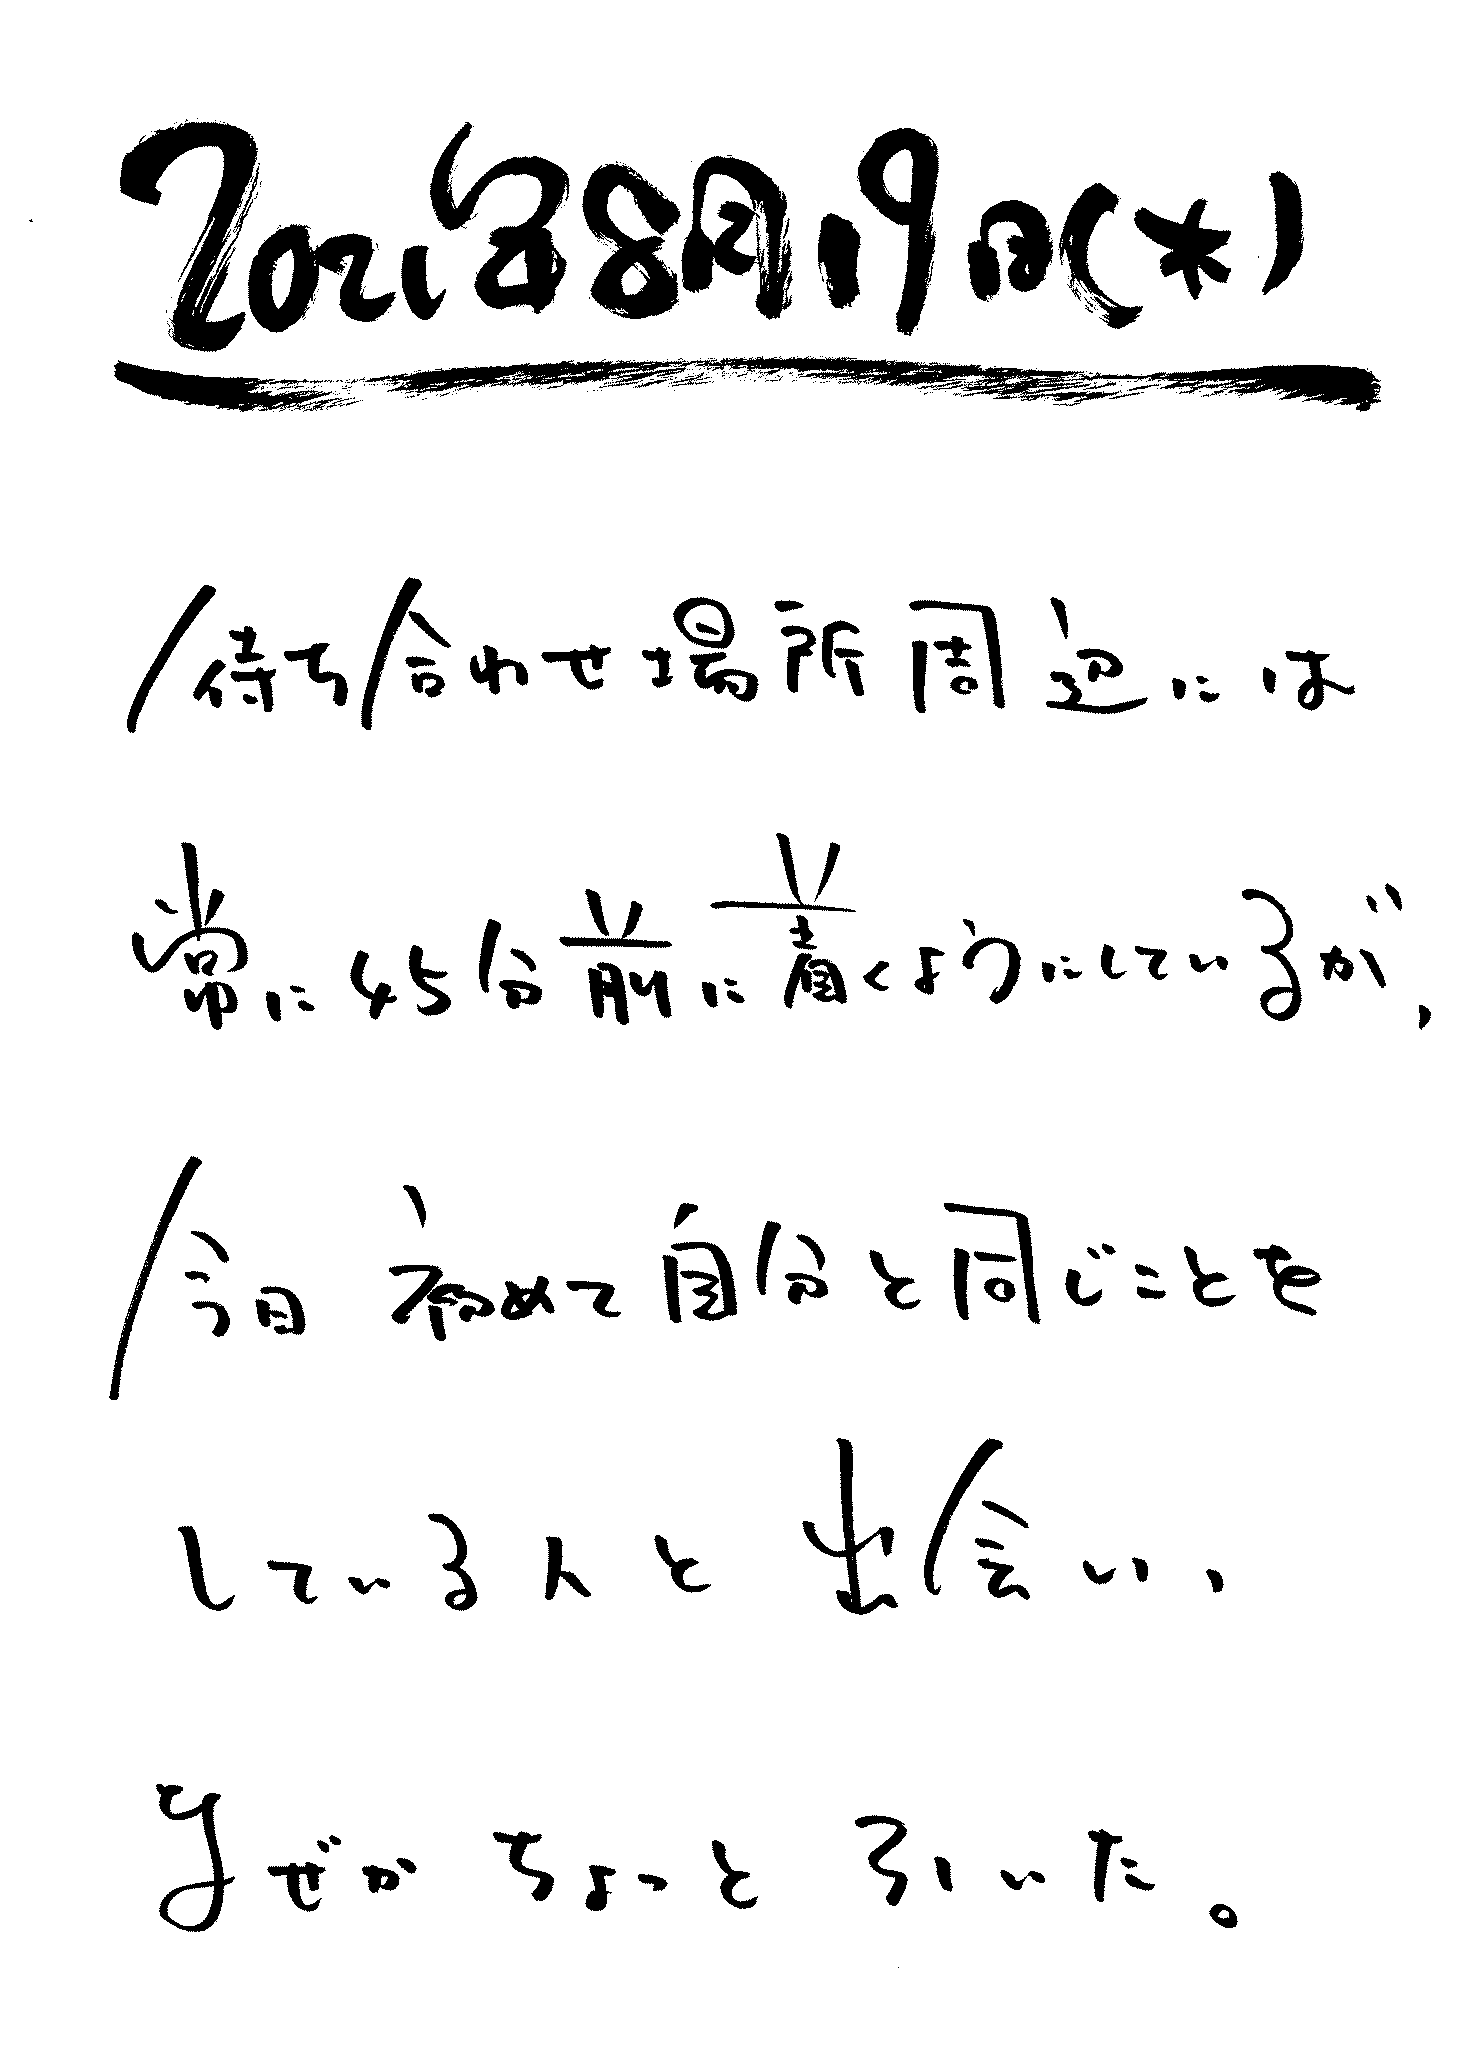 2021年8月19日(木)
待ち合わせ場所周辺には
常に45分前に着くようにしているが、
今日初めて自分と同じことを
している人と出会い、
なぜかちょっと引いた。